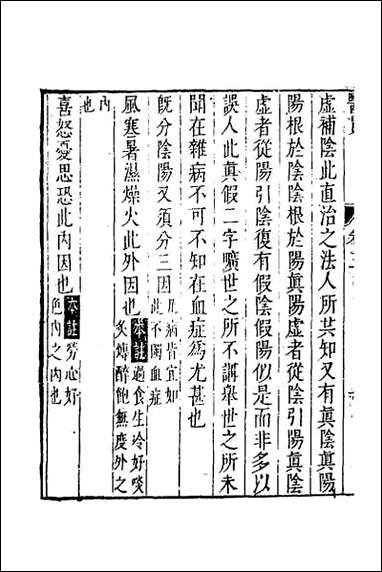 虛補陰此直治之法人所共知又有眞陰眞陽
陽根於陰陰根於陽眞陽虛者從陰引陽眞陰
虛者從陽引陰復有假陰假陽似是而非多以
誤人此眞假二字曠世之所不講舉世之所未
聞在雜病不可不知在血症爲尤甚也
既分陰陽又須分三因凡病皆宜如此不獨血症
風寒暑濕燥火此外因也本註過食生冷好啖炙煿醉飽無度外之
內也
喜怒憂思恐此內因也本註勞心好色內之內也